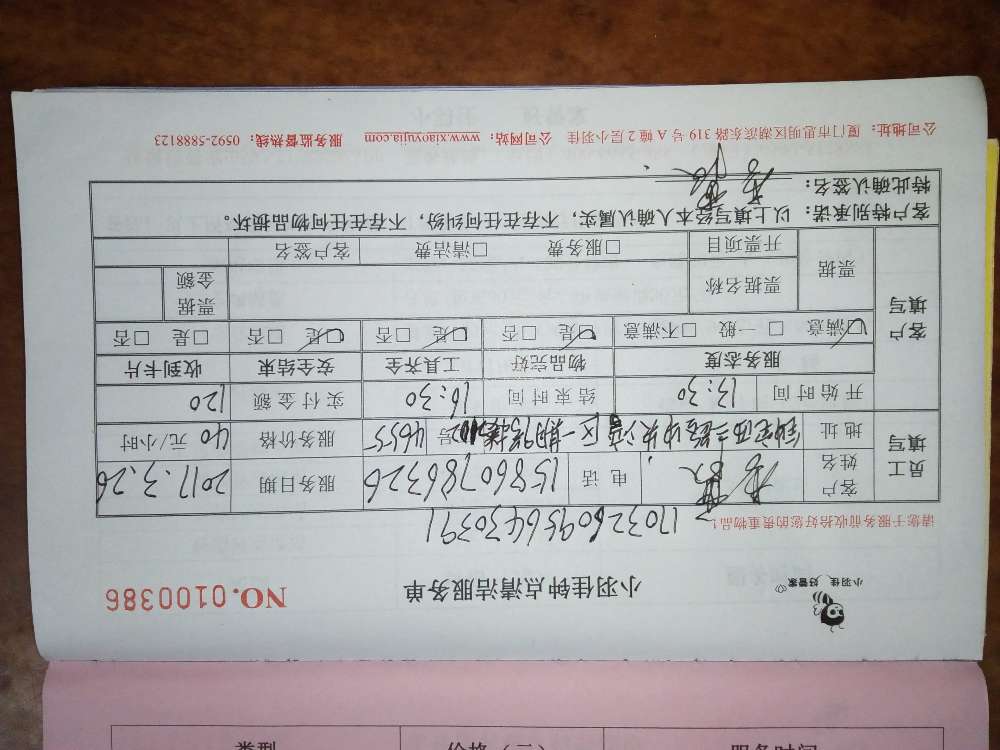 小羽佳 好管家
小羽佳钟点清洁服务单 NO.0100386
1703260956430391
请您于服务前收拾好您的贵重物品！
员工填写
客户姓名 电话 15860786326 服务日期 2017.3.26
地址 中央 区一期 号 4655 服务价格 40 元/小时
开始时间 13:30 结束时间 16:30 实付金额 120
客户填写
服务态度 物品完好 工具齐全 安全结束 收到卡片
☑满意 □一般 □不满意 ☑是 □否 ☑是 □否 ☑是 □否 □是 □否
票据 票据名称 票据金额
开票项目 □服务费 □清洁费 客户签名
客户特别承诺：以上填写经本人确认属实，不存在任何纠纷，不存在任何物品损坏。
特此确认签名：
公司地址：厦门市思明区湖滨东路 319 号 A 幢 2 层小羽佳 公司网站：www.xiaoyujia.com 服务监督热线：0592-5888123
类型 价格（元） 服务时间